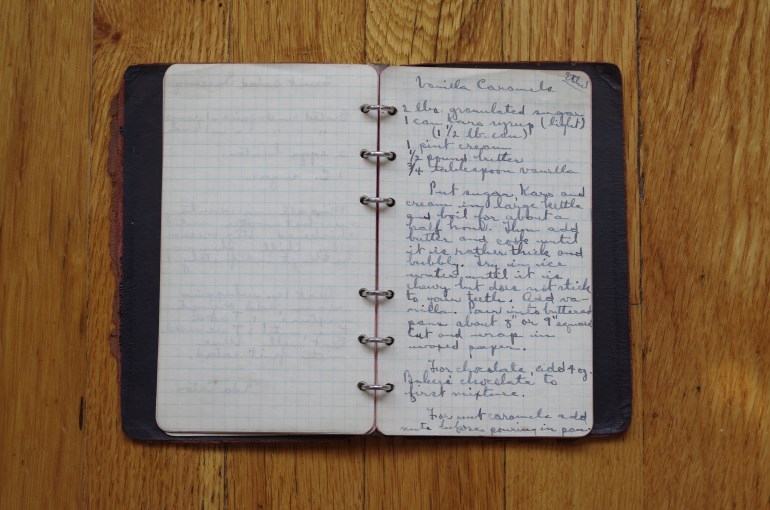 Vanilla Caramels
2 lbs. granulated sugar
1 can Karo syrup (light)
(1 1/2 lb. can)
1 pint cream
1/2 pound butter
3/4 tablespoon vanilla
Put sugar, Karo and
cream in large kettle
and boil for about a
half hour. Then add
butter and cook until
it is rather thick and
bubbly. Try in ice
water until it is
chewy but does not stick
to your teeth. Add va-
nilla. Pour into buttered
pans about 8" or 9" square
Cut and wrap in
waxed paper.
For chocolate, add 4 oz.
Baker's chocolate to
first mixture.
For nut caramels add
nuts before pouring in pan.